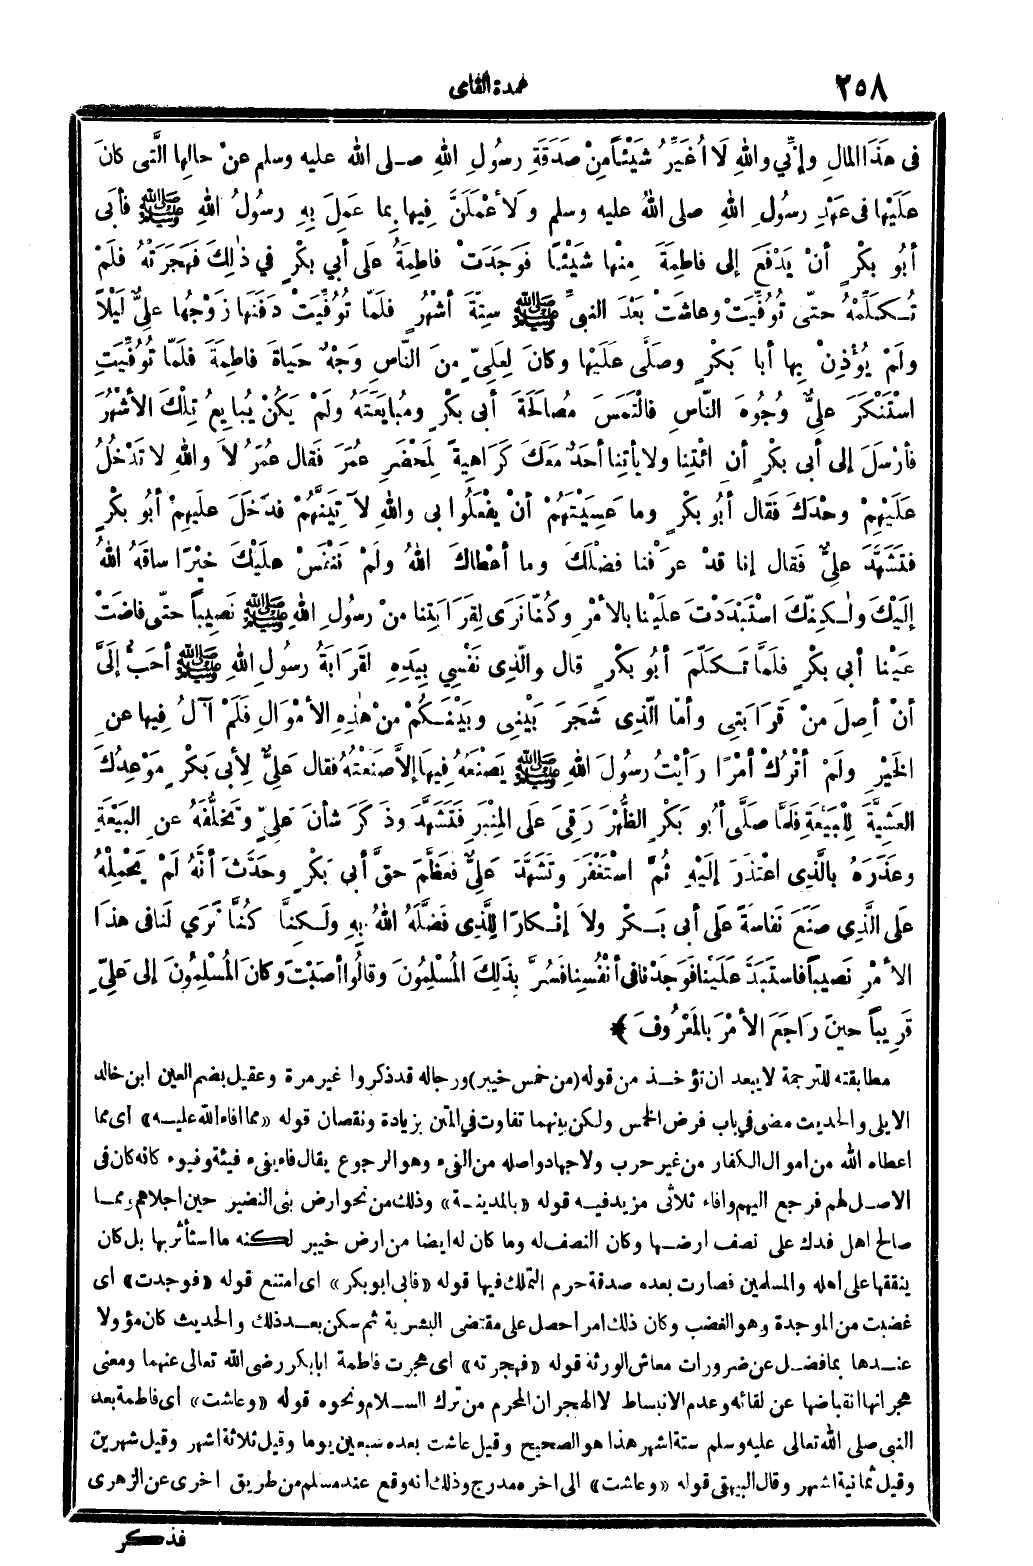 ٢٥٨
عمدة القاى
فى هَذَا المالِ وإنِّي واللهِ لَا أُغَيِّرُ شَيْئاً مِنْ صَدَقَةِ رسُولِ اللهِ صلى الله عليه وسلم عنْ حالِها الَّتى كانَ
عَلَيْها فى عَهْدِ رسُولِ اللهِ صلى اللهُ عليه وسلم ولَأَعْمَلَنَّ فِيها بِما عَمِلَ بِهِ رسُولُ اللهِ ﷺ فأبَى
أبُو بكْرٍ أنْ يَدْفَعَ إلى فاطِمَةَ مِنْها شَيْئًا فوَجَدَتْ فاطِمَةُ علَى أبي بكْرٍ في ذٰلِكَ فهَجَرَتْهُ فلَمْ
تُكَلِّمْهُ حتَّى تُوُفِّيَتْ وعاشَتْ بعْدَ النبيِّ ﷺ سِتَّةَ أشْهُرٍ فلَمَّا تُوُفِّيَتْ دفَنَها زَوْجُها علِيٌّ لَيْلاً
ولَمْ يُؤْذِنْ بِها أبا بَكْرٍ وصَلَّى عَلَيْها وكانَ لِعَلِيٍّ مِنَ النَّاسِ وَجْهٌ حَياةَ فاطِمَةَ فلَمَّا تُوُفِّيَتِ
اسْتَنْكَرَ علِيٌّ وُجُوهَ النَّاسِ فالْتَمَسَ مُصالَحَةَ أبى بكْرٍ ومُبايَعَتَهُ ولَمْ يَكُنْ يُبايِعُ تِلْكَ الأشْهُرَ
فأرْسَلَ إلى أبى بكْرٍ أنِ ائْتِنا ولا يأتِنا أحَدٌ معَكَ كَرَاهِيةً لِمَحْضَرِ عُمَرَ فقال عُمَرُ لاَ واللهِ لا تَدْخُلُ
علَيْهِمْ وحْدَكَ فقال أبُو بكْرٍ وما عَسِيْتَهُمْ أنْ يفْعَلُوا بى واللهِ لآَتِيَنَّهُمْ فدَخَلَ علَيهِمْ أبُو بكْرٍ
فتَشَهَّدَ علِيٌّ فقال إنا قدْ عرَفْنا فضْلَكَ وما أعْطاكَ اللهُ ولَمْ نَنْفَسْ علَيْكَ خيْرًا ساقَهُ اللهُ
إلَيْكَ ولٰكِنَّكَ اسْتَبْدَدْتَ علَيْنا بالأمْرِ وكُنَّا نَرَى لِقَرَابَتِنا منْ رسُولِ اللهِ ﷺ نَصِيباً حتَّى فاضَتْ
عَيْنا أبى بكْرٍ فلَمَّا تَكَلَّمَ أبُو بكْرٍ قال والَّذِى نَفْسِي بِيَدِهِ لقَرَابَةُ رسُولِ اللهِ ﷺ أحَبُّ إلَىَّ
أنْ أصِلَ منْ قَرَابَتِى وأمَّا الَّذِى شَجَرَ بَيْنِى وبَيْنَكُمْ منْ هٰذِهِ الأمْوَالِ فلَمْ آلُ فِيها عنِ
الخَيْرِ ولَمْ أتْرُكْ أمْرًا رأيْتُ رسُولَ اللهِ ﷺ يَصْنَعُهُ فِيهَا إلاَّ صَنَعْتُهُ فقال عَلِيٌّ لِأبى بكْرٍ موْعِدُكَ
العَشِيَّةَ لِلْبَيْعَةِ فلَمَّا صلَّى أبُو بَكْرٍ الظُّهْرَ رَقِىَ علَى المِنْبَرِ فتَشَهَّدَ وذَكَرَ شأنَ عَلِيٍّ وتَخلُّفَهُ عنِ البَيْعَةِ
وعُذْرَهُ بالَّذِى اعْتَذَرَ إلَيْهِ ثُمَّ اسْتَغْفَرَ وتَشَهَّدَ علِيٌّ فعَظَّمَ حقَّ أبى بكْرٍ وحَدَّثَ أنَّهُ لَمْ يَحْمِلْهُ
علَى الَّذِي صنَعَ نَفاسَةً علَى أبى بَكْرٍ ولاَ إنْكارًا لِلَّذِى فضَّلَهُ اللهُ بِهِ ولَكِنَّا كُنَّا نَرَي لَنا فى هذَا
الأمْرِ نَصِيباً فاستَبَدَّ علَيْنا فوَجَدْنا فى أنْفُسِنا فسُرَّ بِذَلِكَ المُسْلِمُونَ وقالُوا أصَبْتَ وكانَ المُسْلِمُونَ إلى عَلِيٍّ
قَرِيباً حينَ رَاجَعَ الأمْرَ بالمَعْرُوفَ ﴾
مطابقته للترجمة لا يبعد ان تؤخذ من قوله (من خمس خيبر) ورجاله قد ذكروا غير مرة وعقيل بضم العين ابن خالد
الايلى والحديث مضى في باب فرض الخمس ولكن بينهما تفاوت في المتن بزيادة ونقصان قوله «مما افاء الله عليه» اى مما
اعطاه الله من اموال الكفار من غير حرب ولا جهاد واصله من الفىء وهو الرجوع يقال فاء يفىء فيئة وفيوء كانه كان فى
الاصل لهم فرجع اليهم وافاء ثلاثى مزيد فيه قوله «بالمدينة» وذلك من نحو ارض بنى النضير حين اجلاهم ومما
صالح اهل فدك على نصف ارضها وكان النصف له وما كان له ايضا من ارض خيبر لكنه ما استأثر بها بل كان
ينفقها على اهله والمسلمين فصارت بعده صدقة حرم التملك فيها قوله «فابى ابو بكر» اى امتنع قوله «فوجدت» اى
غضبت من الموجدة وهو الغضب وكان ذلك امرا حصل على مقتضى البشرية ثم سكن بعد ذلك والحديث كان مؤولا
عندها بما فضل عن ضرورات معاش الورثة قوله «فهجرته» اى هجرت فاطمة ابا بكر رضى الله تعالى عنهما ومعنى
هجرانها انقباضها عن لقائه وعدم الانبساط لا الهجران المحرم من ترك السلام ونحوه قوله «وعاشت» أى فاطمة بعد
النبى صلى الله تعالى عليه وسلم ستة اشهر هذا هو الصحيح وقيل عاشت بعده سبعين يوما وقيل ثلاثة اشهر وقيل شهرين
وقيل ثمانية اشهر وقال البيهقى قوله «وعاشت» الى اخره مدرج وذلك انه وقع عند مسلم من طريق اخرى عن الزهرى
فذكر